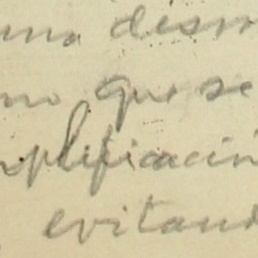 una dism
mo que se
mplificación
evitand